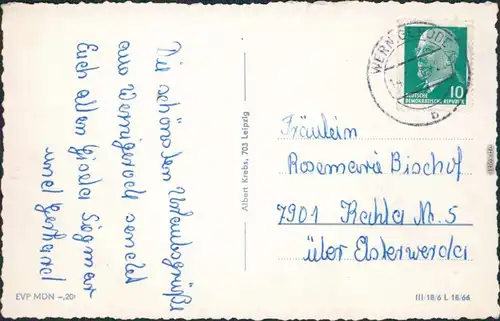 Die schönsten Urlaubsgrüße
aus Wernigerode sendet
Euch allen Gisela Sigmar
und Gerhard
Albert Krebs, 703 Leipzig
WERNIGERODE
b
10
DEUTSCHE
DEMOKRATISCHE REPUBLIK
Fräulein
Rosemarie Bischof
7901 Kahla Nr. 5
über Elsterwerda
EVP MDN –,20
III/18/6 L 18/66